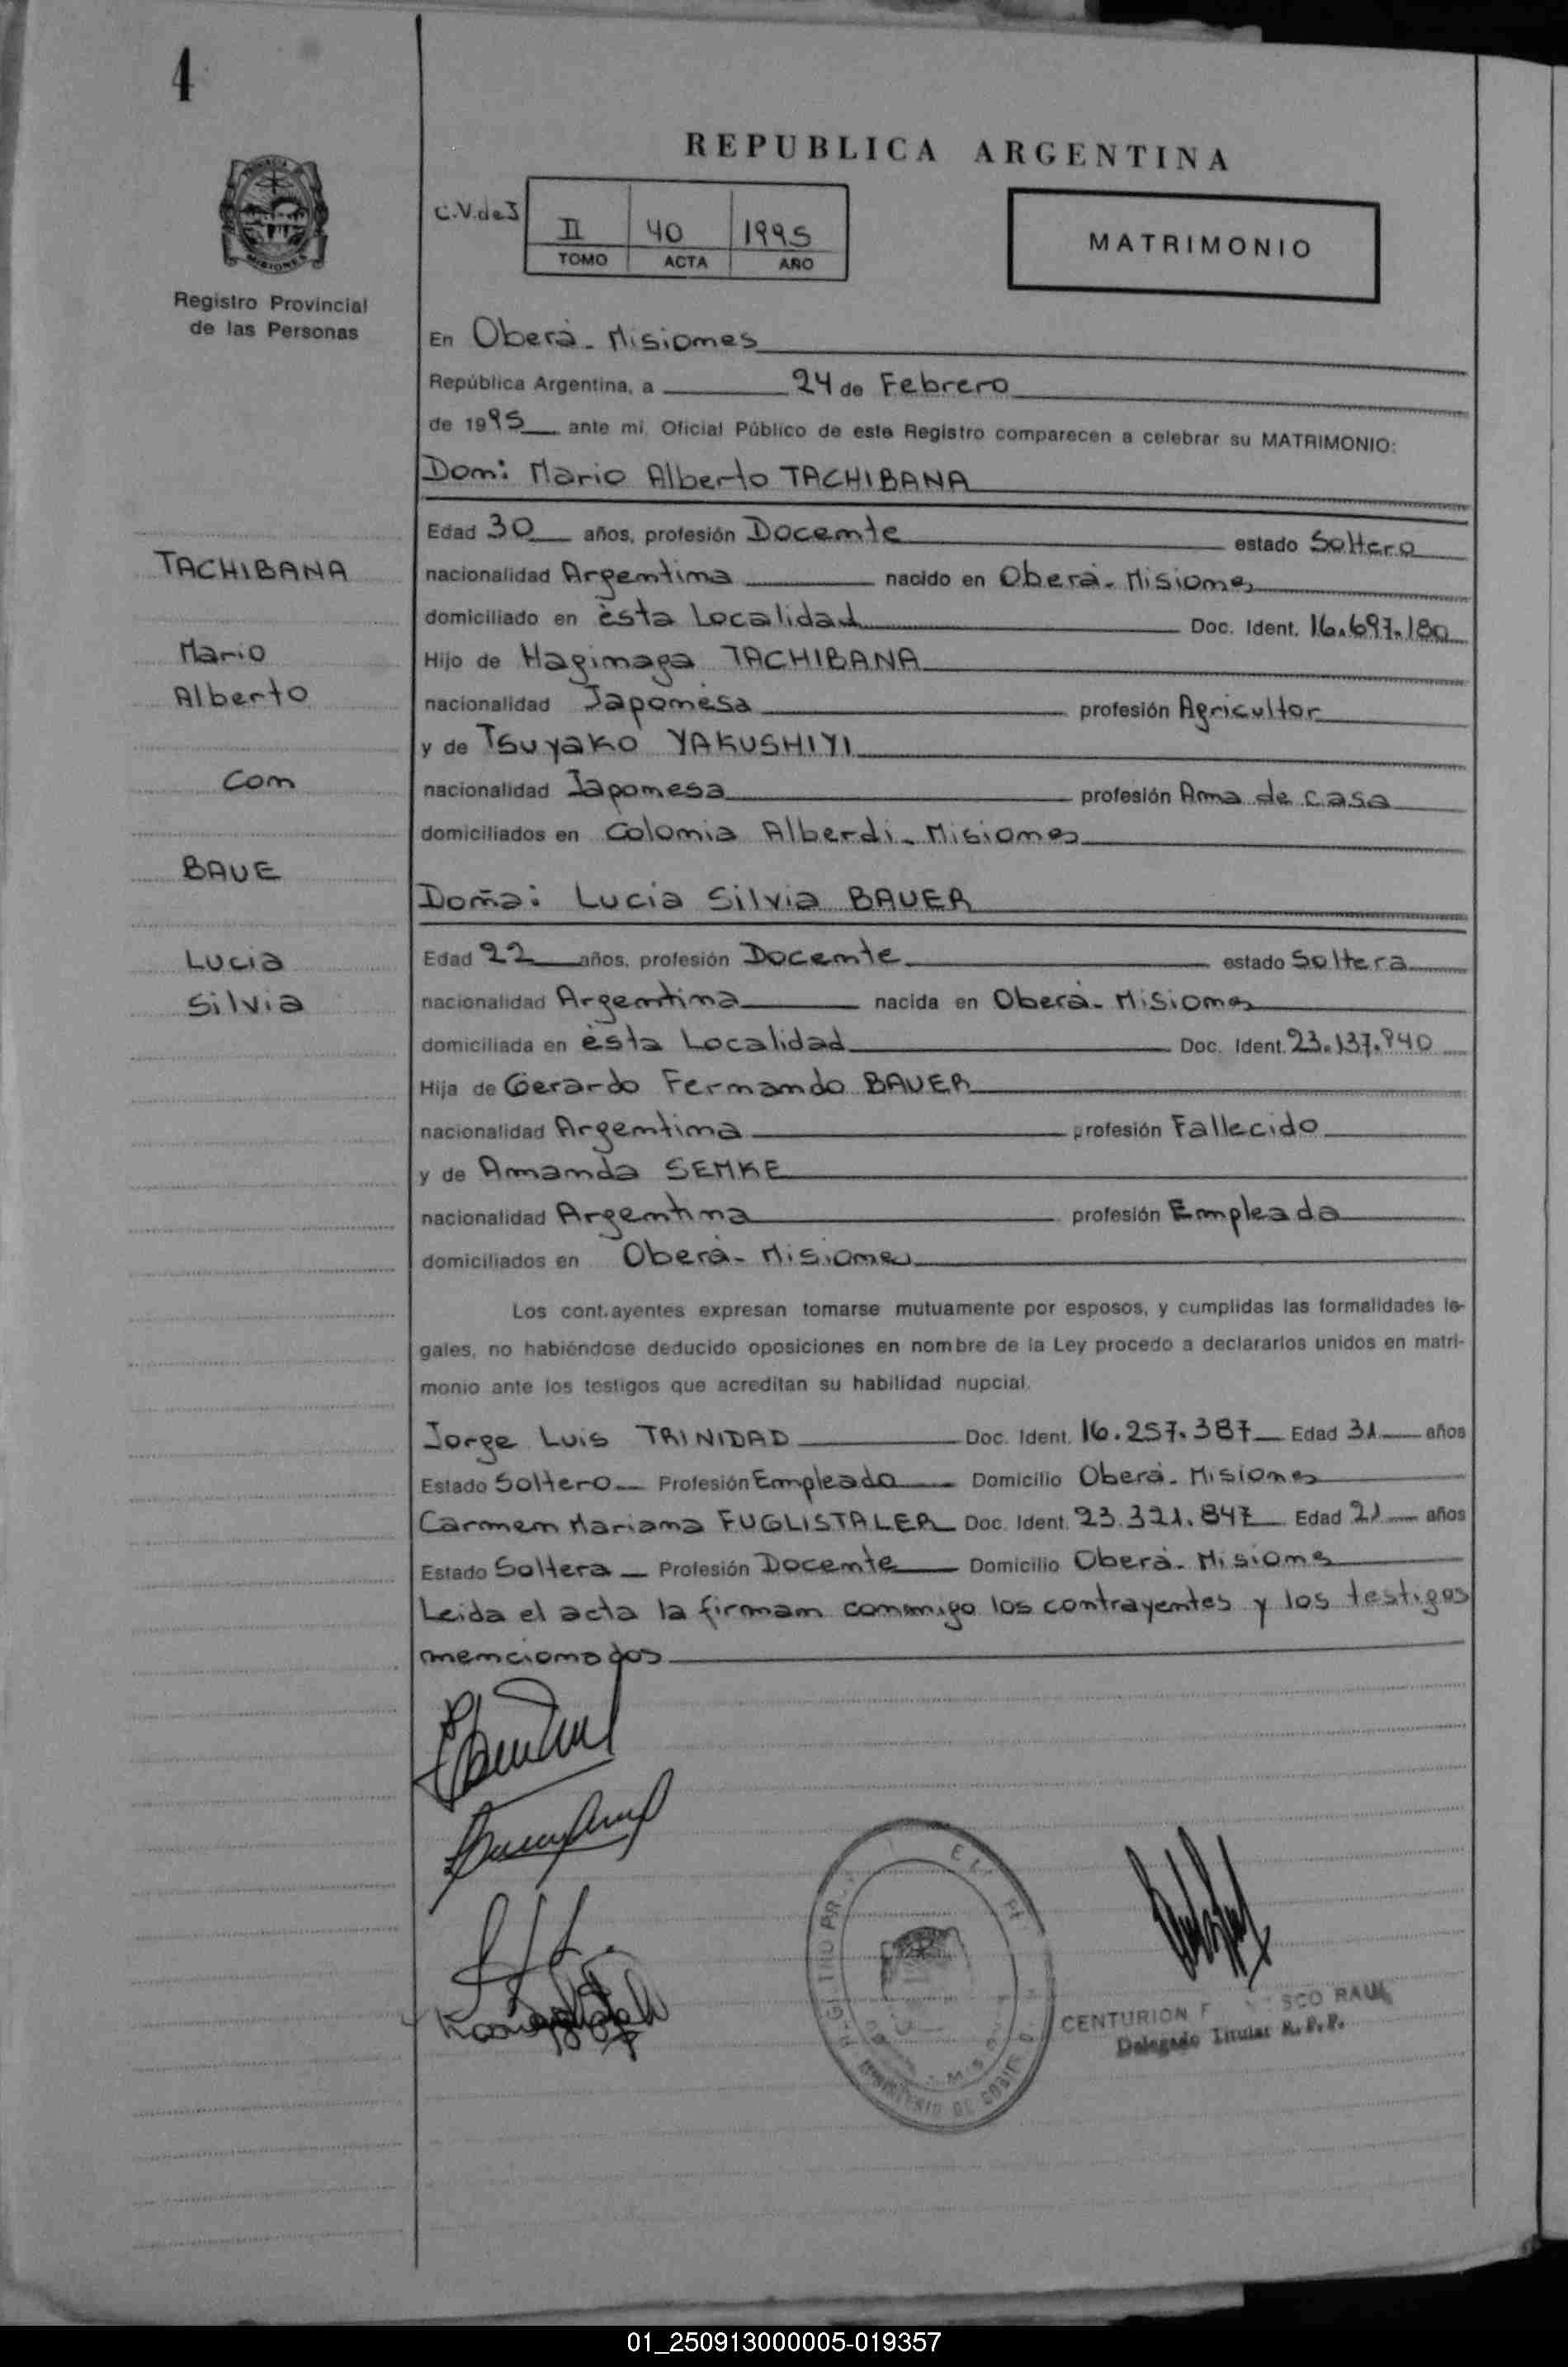 4
REPUBLICA ARGENTINA
C.V.deI
II 40 1995
TOMO ACTA AÑO
MATRIMONIO
MISIONES
Registro Provincial
de las Personas
En Oberá - Misiones
República Argentina, a 24 de Febrero
de 1995 ante mí, Oficial Público de este Registro comparecen a celebrar su MATRIMONIO:
Don: Mario Alberto TACHIBANA
Edad 30 años, profesión Docente estado Soltero
nacionalidad Argentina nacido en Oberá - Misiones
domiciliado en ésta Localidad Doc. Ident. 16.697.180
Hijo de Hagimaga TACHIBANA
nacionalidad Japonésa profesión Agricultor
y de Tsuyako YAKUSHIYI
nacionalidad Japonesa profesión Ama de casa
domiciliados en Colonia Alberdi - Misiones
Doña: Lucia Silvia BAUER
Edad 22 años, profesión Docente estado Soltera
nacionalidad Argentina nacida en Oberá - Misiones
domiciliada en ésta Localidad Doc. Ident. 23.137.940
Hija de Gerardo Fernando BAUER
nacionalidad Argentina profesión Fallecido
y de Amanda SEMKE
nacionalidad Argentina profesión Empleada
domiciliados en Oberá - Misiones
Los contrayentes expresan tomarse mutuamente por esposos, y cumplidas las formalidades le-
gales, no habiéndose deducido oposiciones en nombre de la Ley procedo a declararlos unidos en matri-
monio ante los testigos que acreditan su habilidad nupcial.
Jorge Luis TRINIDAD Doc. Ident. 16.257.387 Edad 31 años
Estado Soltero Profesión Empleado Domicilio Oberá - Misiones
Carmen Mariana FUGLISTALER Doc. Ident. 23.321.847 Edad 21 años
Estado Soltera Profesión Docente Domicilio Oberá - Misiones
Leida el acta la firman conmigo los contrayentes y los testigos
mencionados
TACHIBANA
Mario
Alberto
con
BAUE
Lucia
Silvia
MINISTERIO DE
CENTURION RAUL
Delegado Titular R.P.P.
01_250913000005-019357